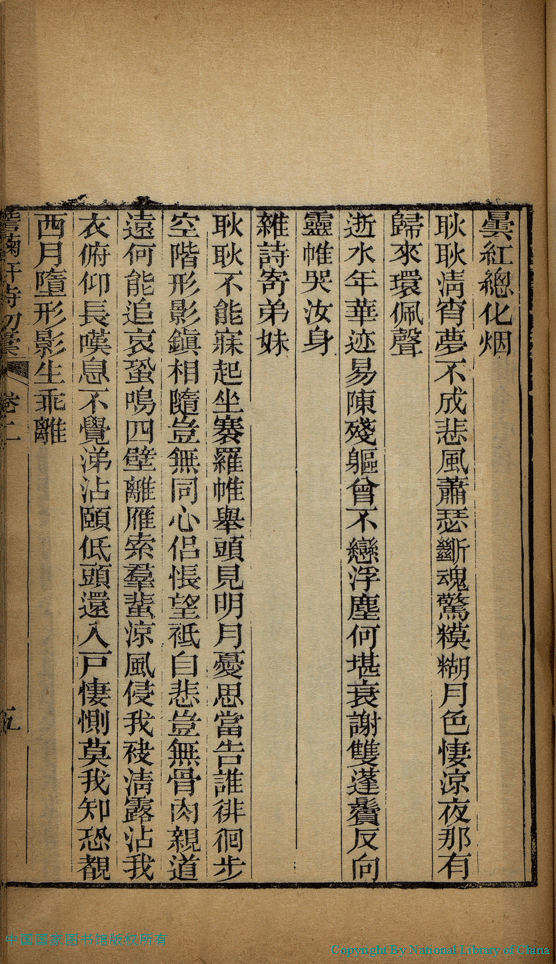 曇紅總化烟
耿耿淸宵夢不成悲風蕭瑟斷魂驚糢糊月色悽涼夜那有
歸來環佩聲
逝水年華迹易陳殘軀曾不戀浮塵何堪衰謝雙蓬鬢反向
靈帷哭汝身
雜詩寄弟妹
耿耿不能寐起坐褰羅帷舉頭見明月憂思當告誰徘徊步
空階形影鎭相隨豈無同心侶悵望祗自悲豈無骨肉親道
遠何能追哀蛩鳴四壁離雁索羣蜚涼風侵我袂淸露沾我
衣俯仰長嘆息不覺涕沾頤低頭還入戸悽惻莫我知恐覩
西月墮形影生乖離
菊軒詩初藁 卷二
五
中国国家图书馆版权所有
Copyright By National Library of China